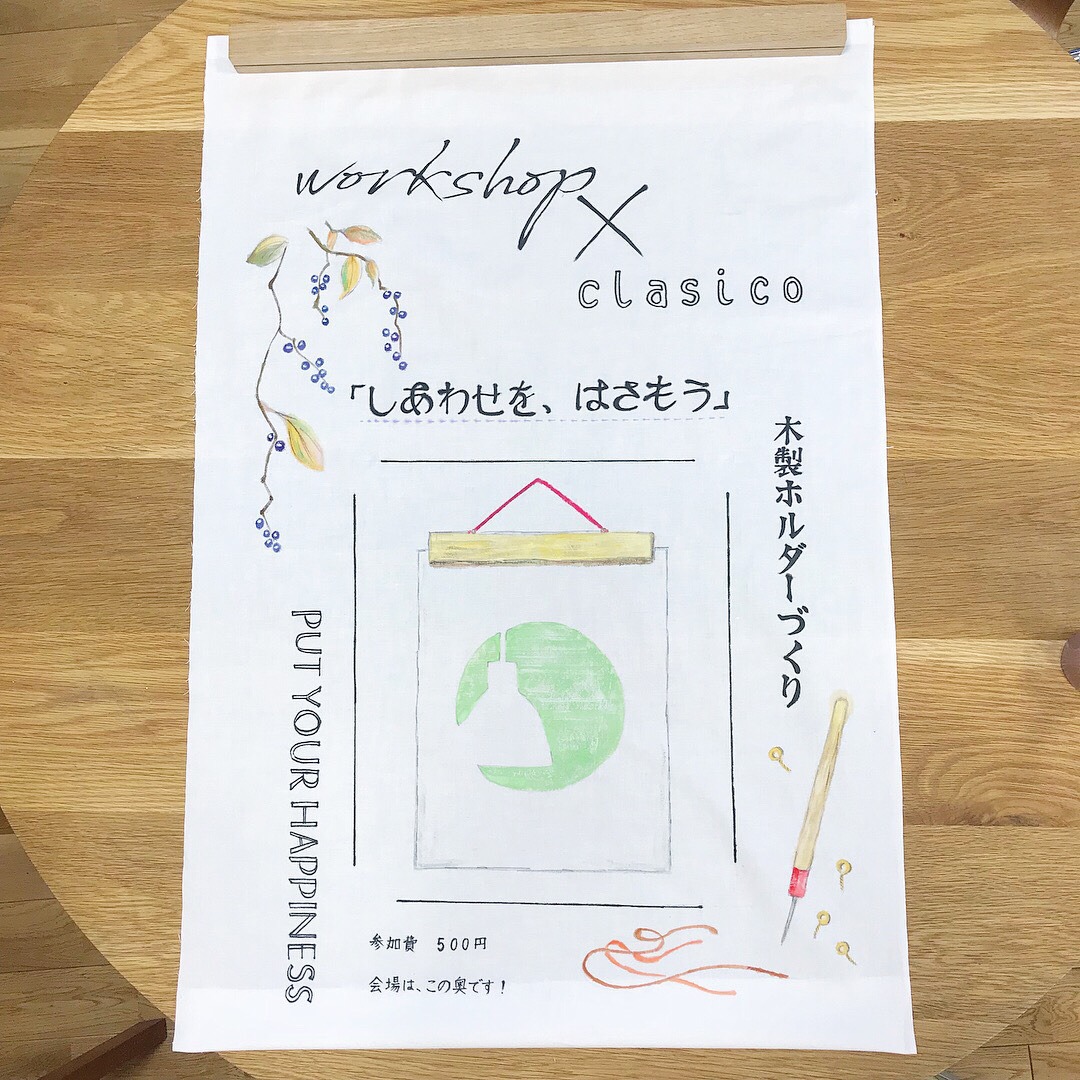 workshop
×
clasico
「しあわせを、はさもう」
木製ホルダーづくり
PUT YOUR HAPPINESS
参加費 500円
会場は、この奥です！